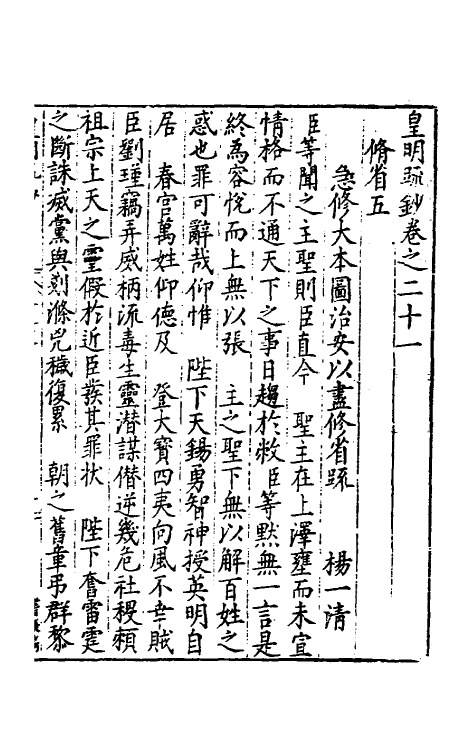 皇明疏鈔卷之二十一
脩省五
急修大本圖治安以盡修省疏 楊一清
臣等聞之主聖則臣直今 聖主在上澤壅而未宣
情格而不通天下之事日趨於敝臣等默無一言是
終為容悅而上無以張 主之聖下無以解百姓之
惑也罪可辭哉仰惟 陛下天錫勇智神授英明自
居 春宮萬姓仰德及 登大寶四夷向風不幸賊
臣劉瑾竊弄威柄流毒生靈潜謀僭逆幾危社稷賴
祖宗上天之靈假於近臣發其罪狀 陛下奮雷霆
之斷誅威黨與剗滌兇穢復累 朝之舊章弔群黎